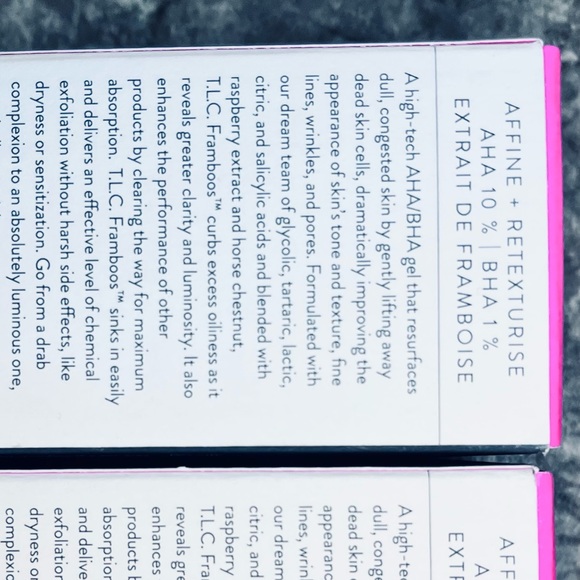 AFFINE + RETEXTURISE
AHA 10 % | BHA 1 %
EXTRAIT DE FRAMBOISE
A high-tech AHA/BHA gel that resurfaces
dull, congested skin by gently lifting away
dead skin cells, dramatically improving the
appearance of skin's tone and texture, fine
lines, wrinkles, and pores. Formulated with
our dream team of glycolic, tartaric, lactic,
citric, and salicylic acids and blended with
raspberry extract and horse chestnut,
T.L.C. Framboos™ curbs excess oiliness as it
reveals greater clarity and luminosity. It also
enhances the performance of other
products by clearing the way for maximum
absorption. T.L.C. Framboos™ sinks in easily
and delivers an effective level of chemical
exfoliation without harsh side effects, like
dryness or sensitization. Go from a drab
complexion to an absolutely luminous one,
AFF
A
EXT
A high-te
dull, conge
dead skin
appearanc
lines, wrin
our dream
citric, and
raspberry
T.L.C. Fra
reveals gre
enhances
products b
absorption
and delive
exfoliation
dryness o
complexic